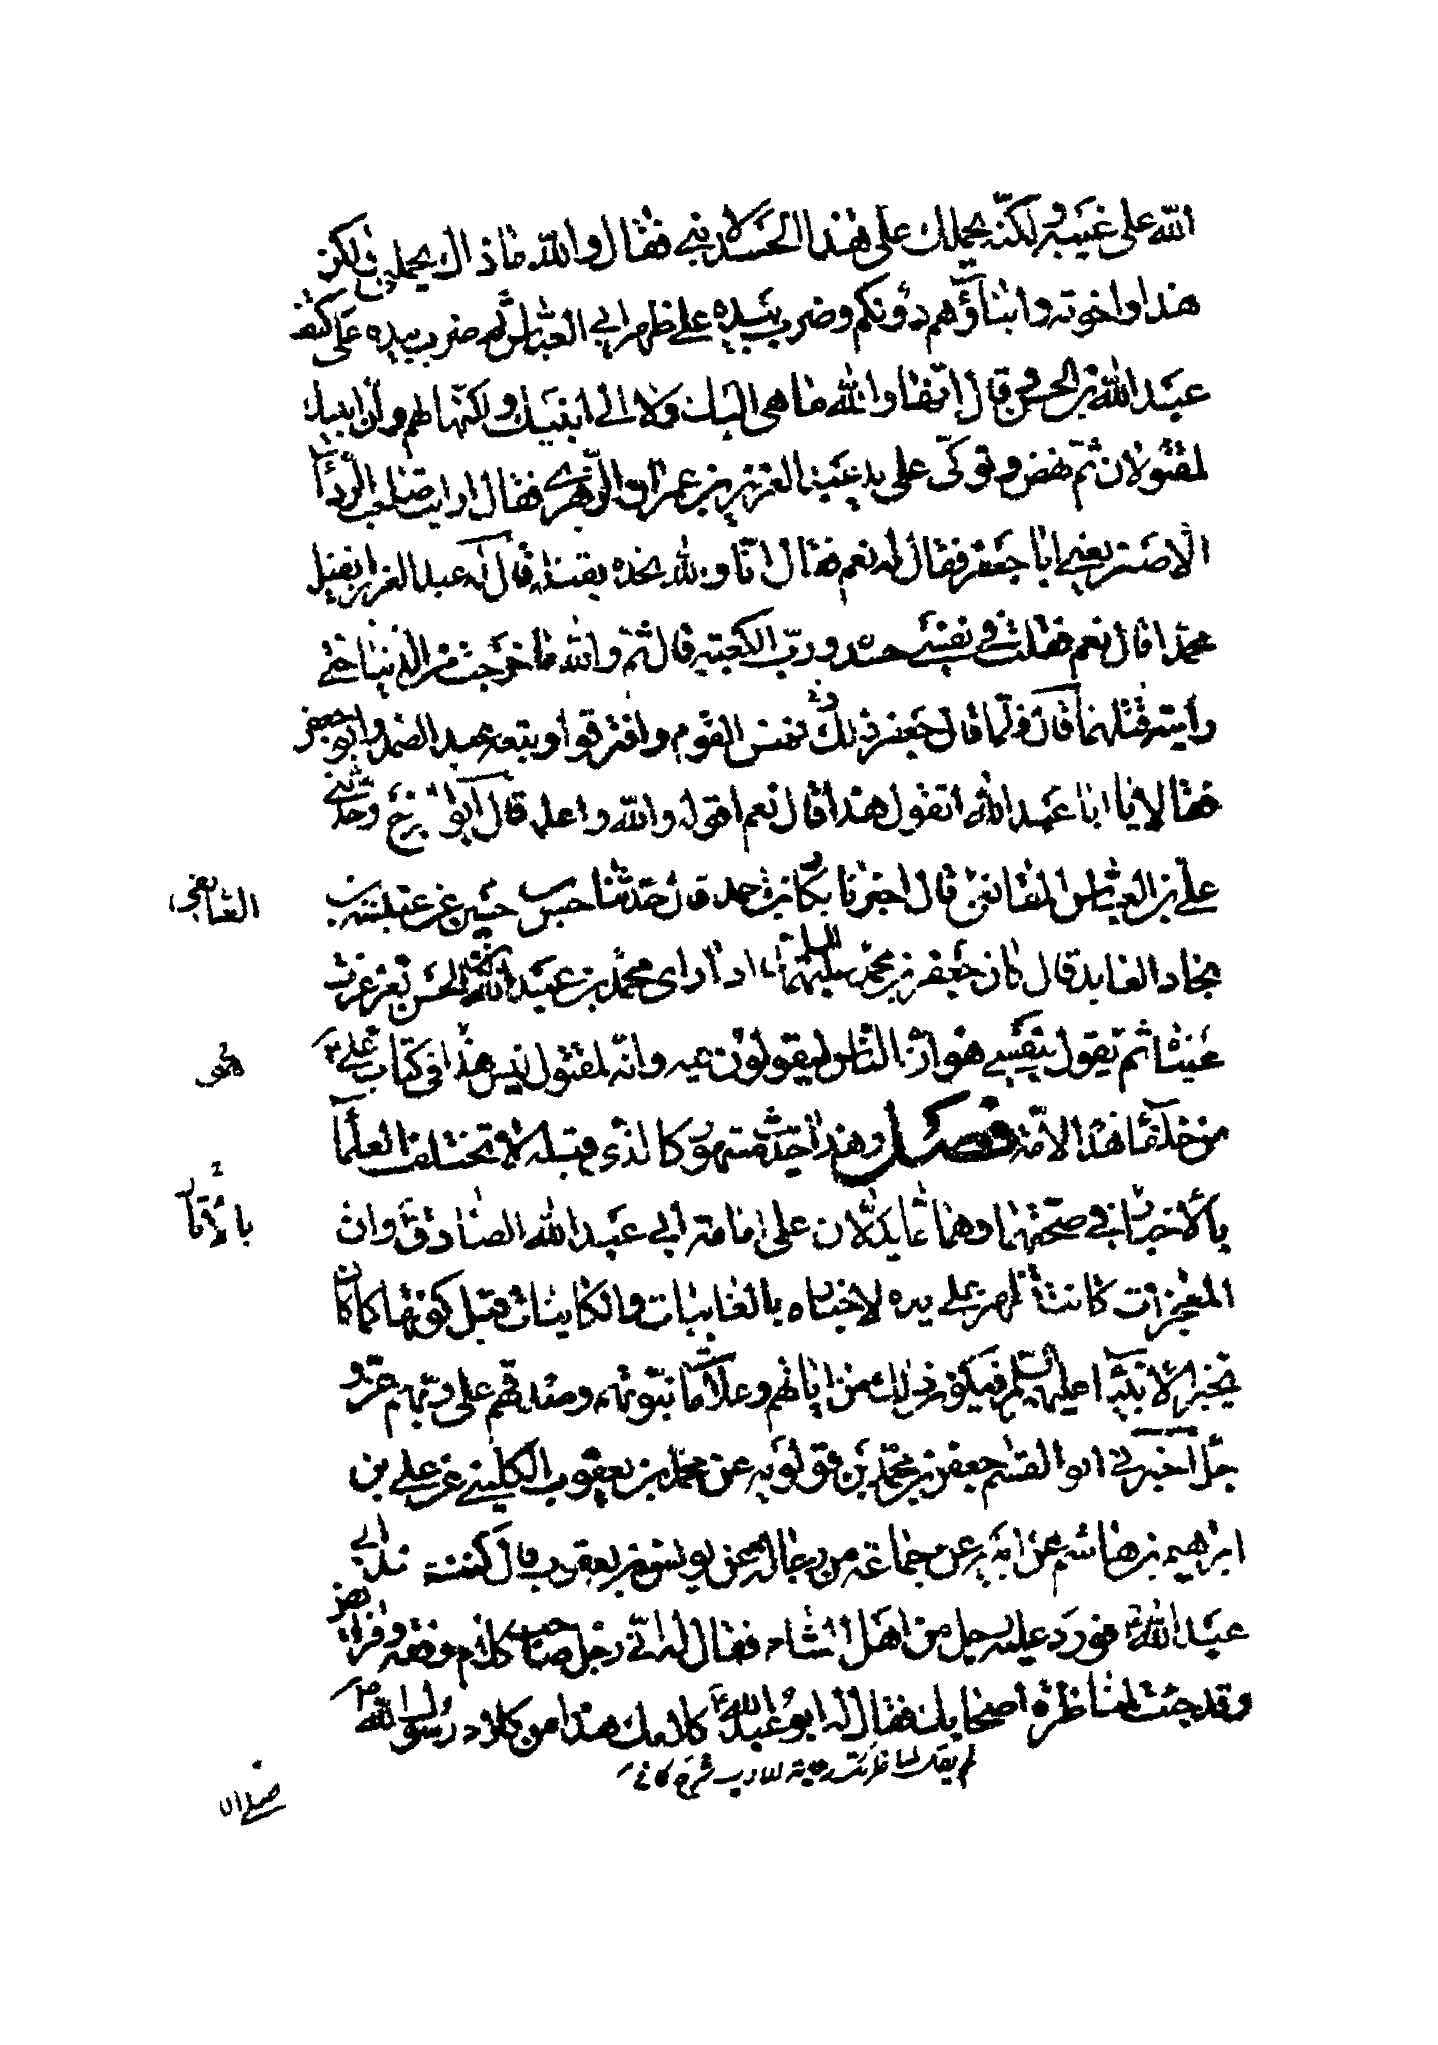 الله على غيبه ولكنّه يحملك على هذا الحسد لابني فقال والله ما ذاك يحملني ولكن
هذا واخوته وابناؤهم دونكم وضرب بيده على ظهر ابي العباس ثم ضرب بيده على كتف
عبد الله بن الحسن وقال انّها والله ما هي اليك ولا الى ابنيك ولكنّها لهم وان ابنيك
لمقتولان ثمّ نهض وتوكّى على يد عبد العزيز بن عمران الزّهري فقال ارايت صاحب الردآء
الاصفر يعني ابا جعفر فقال له نعم فقال انّا والله نجده يقتله قال له عبد العزيز ايقتل
محمّدا قال نعم فقلت في نفسي حسده وربّ الكعبة قال ثمّ والله ما خرجت من الدنيا حتّى
رايته قتلهما قال ولمّا قال جعفر ذلك نهض القوم وافترقوا وتبعه عبد الصمد وابو جعفر
فقالا يا ابا عبد الله اتقول هذا قال نعم اقوله والله واعلمه قال ابو الفرج وحدّثني
علي بن العباس المقانعي قال اخبرنا بكّار بن احمد قال حدّثنا حسن بن حسين عن عنبسة بن
نجاد العابد قال كان جعفر بن محمد عليهما السلام اذا راى محمّد بن عبد الله بن الحسن تغرغرت
عيناه ثم يقول بنفسي هو انّ النّاس ليقولون فيه وانّه لمقتول ليس هذا في كتاب علي ع
من خلفآء هذه الامّة فصل وهذا حديث مشهور كالذي قبله لا تختلف العلمآء
بالاخبار في صحّتهما وهما ممّا يدلّان على امامة ابي عبد الله الصّادق ع وان
المعجزات كانت تظهر على يده لاخباره بالغايبات والكاينات قبل كونها كما كان
يخبر الانبيآء عليهم السلم فيكون ذلك من اياتهم وعلامات نبوّتهم وصدقهم على ربّهم عزّ و
جلّ اخبرني ابو القسم جعفر بن محمّد بن قولويه عن محمّد بن يعقوب الكليني عن علي بن
ابرهيم بن هاشم عن ابيه عن جماعة من رجاله عن يونس بن يعقوب قال كنت عند ابي
عبد الله ع فورد عليه رجل من اهل الشام فقال له انّي رجل صاحب كلام وفقه وفرايض
وقد جئت لمناظرة اصحابك فقال له ابو عبد الله ع كلامك هذا من كلام رسول الله ص
المقانعي
هو
بالآثار